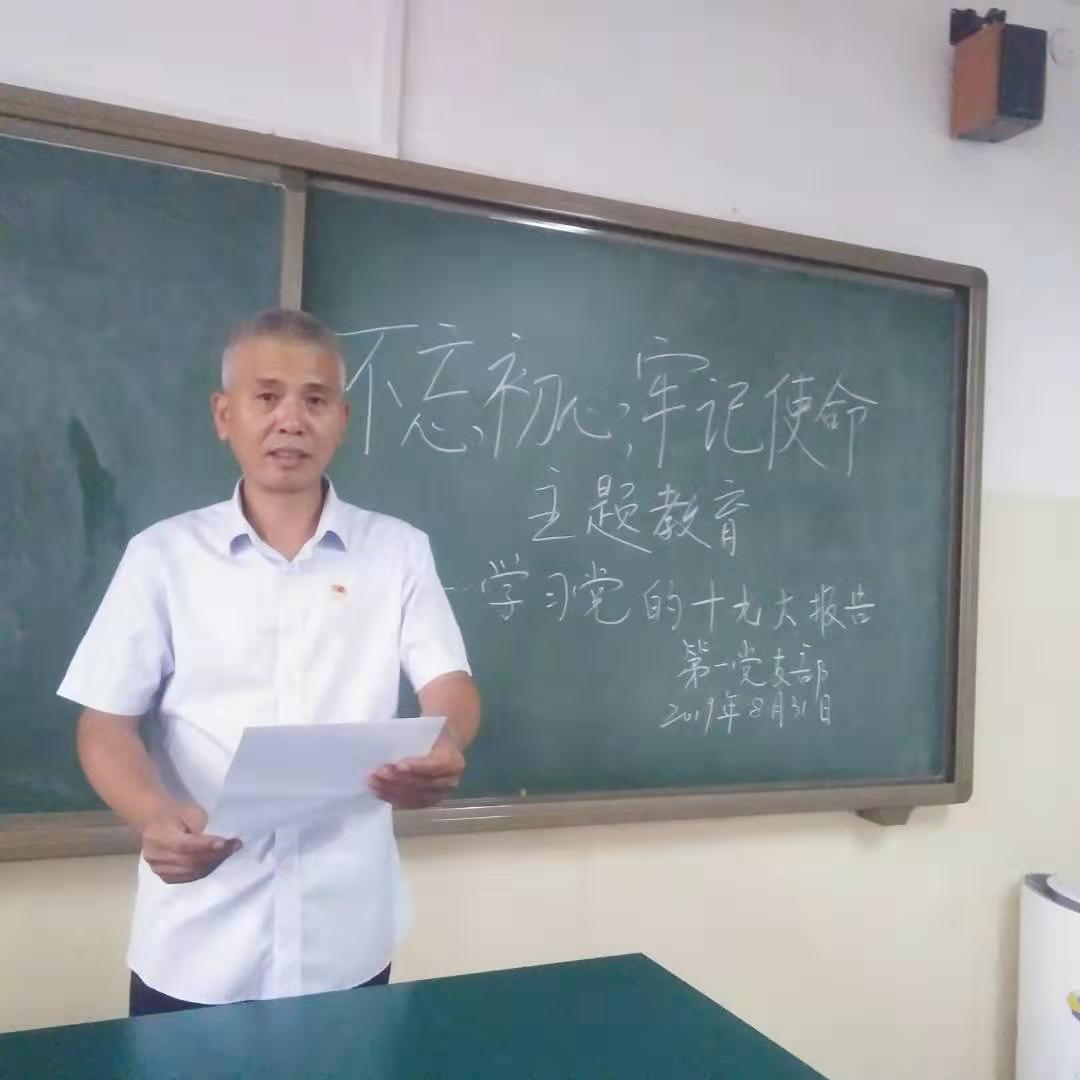 不忘初心,牢记使命
主题教育
--学习党的十九大报告
第一党支部
2019年8月31日